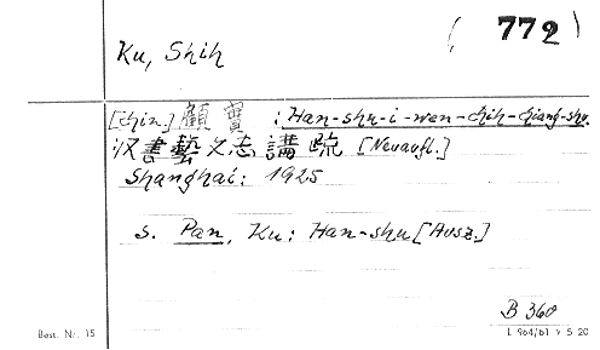 ( 772 )
Ku, Shih
[chin.] 顧 實 : Han-shu-i-wen-chih-chiang-shu.
汉書藝文志講疏 [Neuaufl.]
Shanghai: 1925
s. Pan, Ku: Han-shu [Ausz.]
B 360
Best. Nr. 15
L 964/61 V 5 20